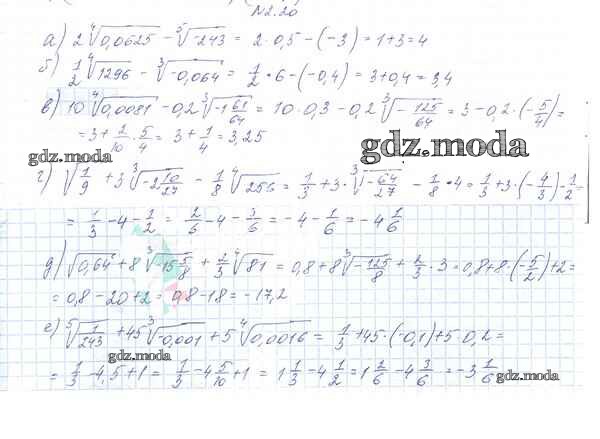 N 2.20
а) 2 ⁴√0,0625 − ⁵√−243 = 2·0,5 − (−3) = 1+3 = 4
б) 1/2 ⁴√1296 − ³√−0,064 = 1/2 · 6 − (−0,4) = 3+0,4 = 3,4
в) 10 ⁴√0,0081 − 0,2 ³√−1 61/64 = 10·0,3 − 0,2 ³√−125/64 = 3 − 0,2·(−5/4) =
= 3 + 2/10 · 5/4 = 3 + 1/4 = 3,25
gdz.moda
gdz.moda
г) √1/9 + 3 ³√−2 10/27 − 1/8 ⁴√256 = 1/3 + 3·³√−64/27 − 1/8·4 = 1/3 + 3·(−4/3) − 1/2 =
= 1/3 − 4 − 1/2 = 2/6 − 4 − 3/6 = −4 − 1/6 = −4 1/6
д) √0,64 + 8 ³√−15 5/8 + 2/3 ⁴√81 = 0,8 + 8 ³√−125/8 + 2/3 · 3 = 0,8 + 8·(−5/2) + 2 =
= 0,8 − 20 + 2 = 0,8 − 18 = −17,2
е) ⁵√1/243 + 45 ³√−0,001 + 5 ⁴√0,0016 = 1/3 + 45·(−0,1) + 5·0,2 =
gdz.moda
= 1/3 − 4,5 + 1 = 1/3 − 4 5/10 + 1 = 1 1/3 − 4 1/2 = 1 2/6 − 4 3/6 = −3 1/6
gdz.moda
gdz.moda